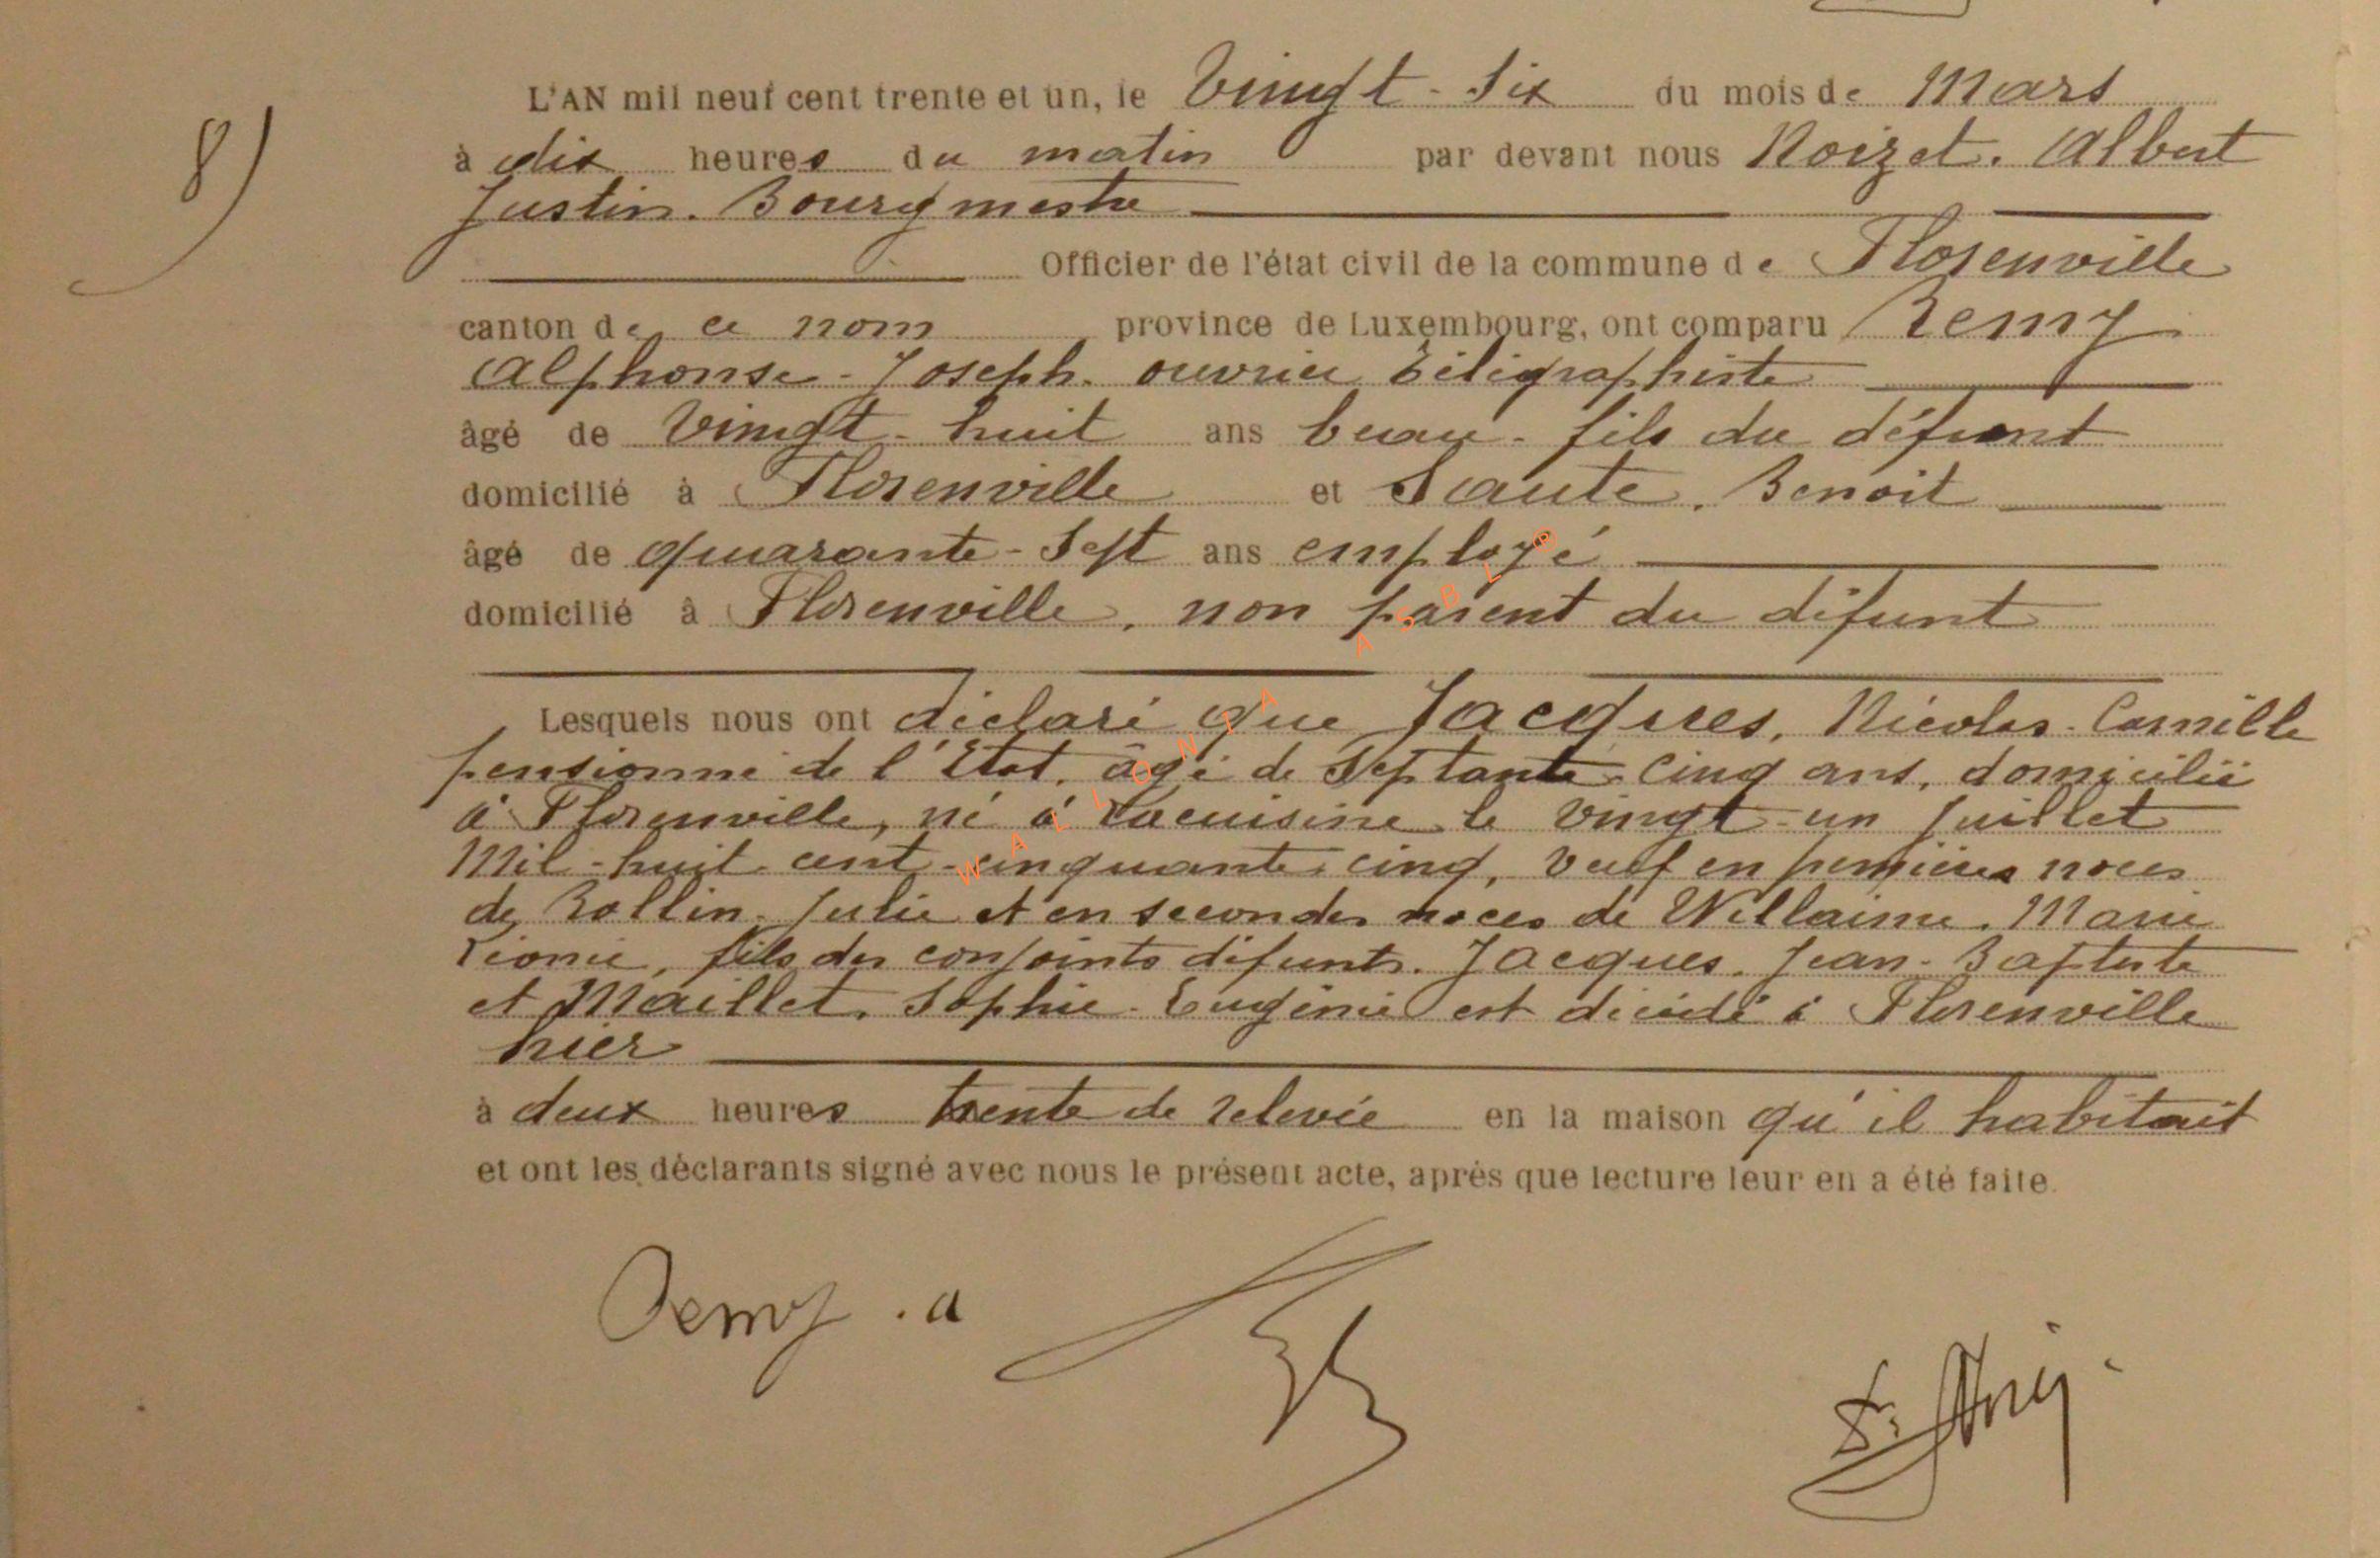 8)
L'AN mil neuf cent trente et un, le Vingt-Six du mois de Mars
à dix heures du matin par devant nous Noizet. Albert
Justin. Bourgmestre
Officier de l'état civil de la commune de Florenville
canton de ce nom province de Luxembourg, ont comparu Remy
Alphonse-Joseph. ouvrier Télégraphiste
âgé de Vingt-huit ans beau-fils du défunt
domicilié à Florenville et Saute, Benoit
âgé de quarante-Sept ans employé
domicilié à Florenville, non parent du défunt
Lesquels nous ont déclaré que Jacques, Nicolas-Camille
pensionné de l'Etat, âgé de Septante-Cinq ans, domicilié
à Florenville, né à Lacuisine le vingt-un Juillet
Mil-huit cent-cinquante cinq, veuf en premières noces
de Rollin. Julie et en secondes noces de Willaime. Marie
Léonie, fils des conjoints défunts. Jacques. Jean-Baptiste
et Maillet. Sophie-Eugénie est décédé à Florenville
hier
à deux heures trente de relevée en la maison qu'il habitait
et ont les déclarants signé avec nous le présent acte, après que lecture leur en a été faite.
Remy . a
WALLONIA ASBL ®